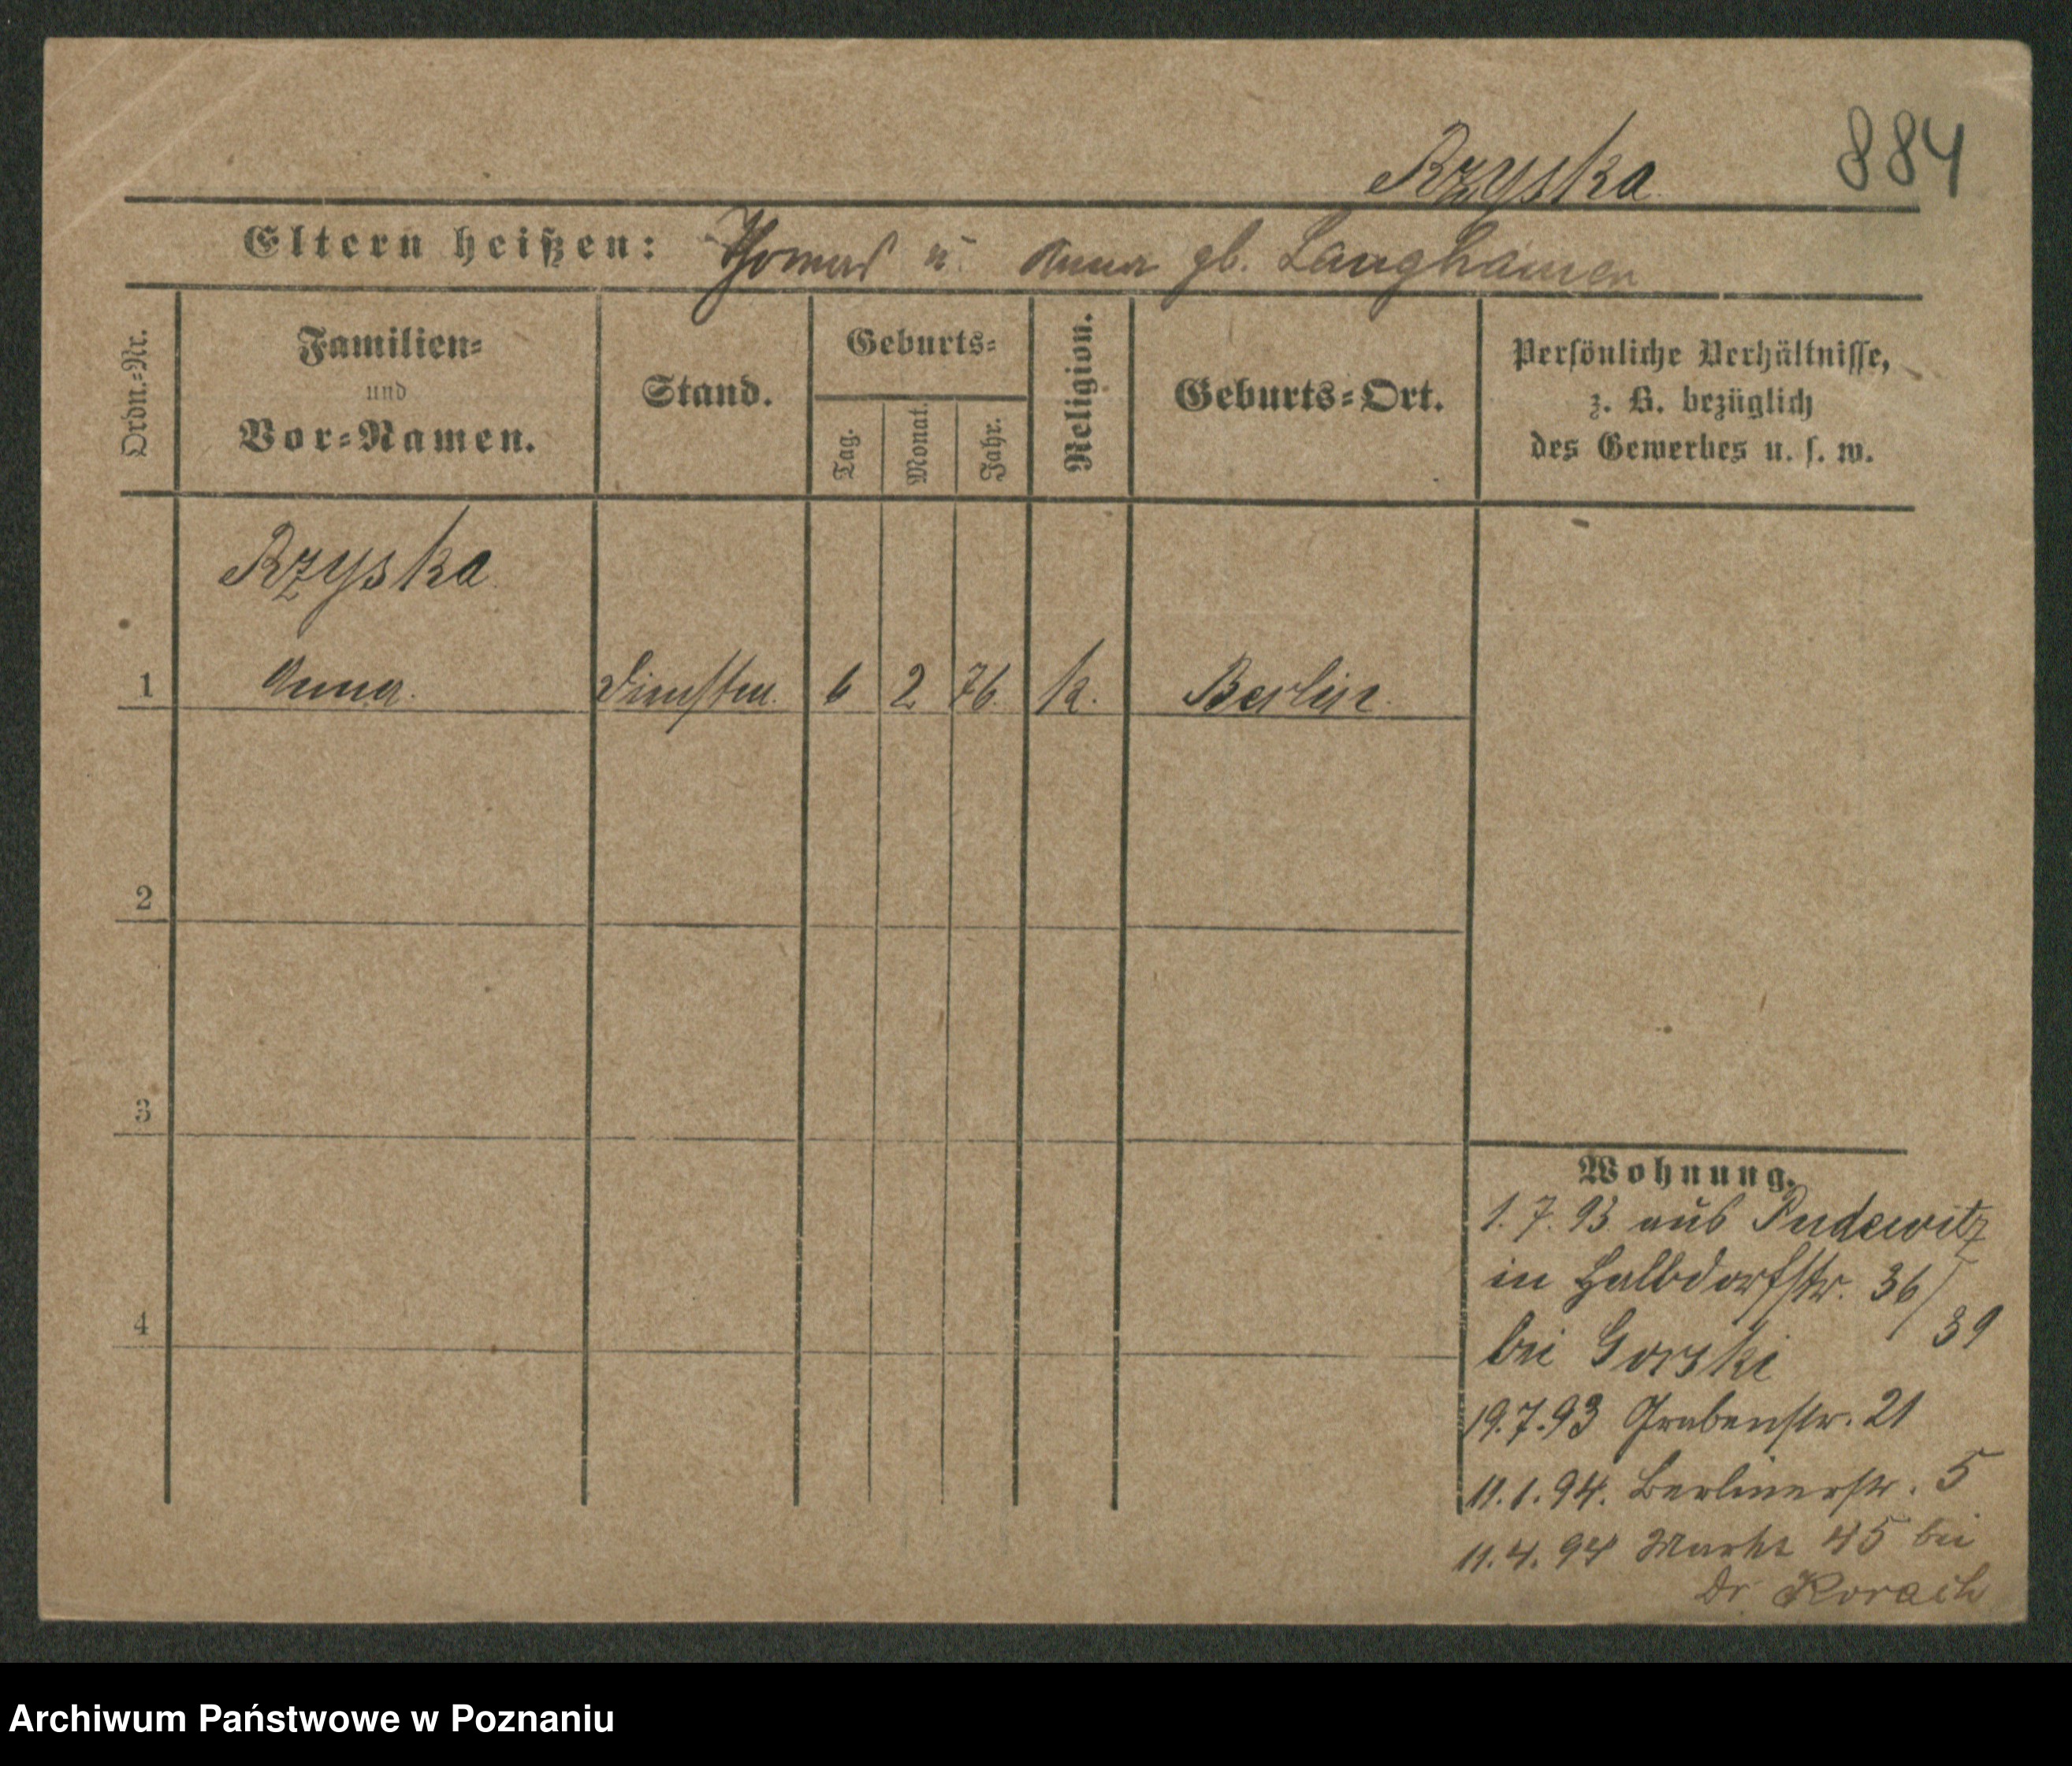 Rzyska 884
Eltern heißen: Thomas u. Anna gb. Langhamer
Ordn.-Nr.
Familien-
und
Vor-Namen.
Stand.
Geburts-
Tag.
Monat.
Jahr.
Religion.
Geburts-Ort.
Persönliche Verhältnisse,
z. B. bezüglich
des Gewerbes u. s. w.
Rzyska
1 Anna. 6 2 76. k. Berlin.
2
3
4
Wohnung.
1. 7. 93 aus Pudewitz
in Halbdorfstr. 36/39
bei Gorski
19.7.93 Grabenstr. 21
11.1.94. Berlinerstr. 5
11.4.94 Markt 45 bei
Dr Korach
Archiwum Państwowe w Poznaniu